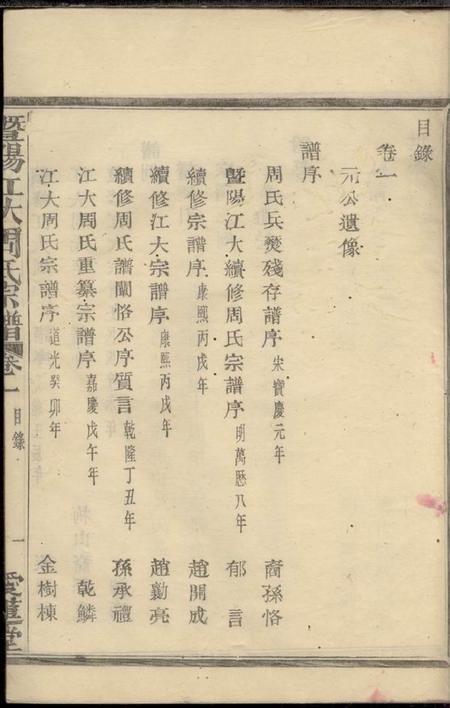 目錄
卷一
元公遺像
譜序
周氏兵燹殘存譜序 宋寶慶元年 裔孫恪
暨陽江大續修周氏宗譜序 明萬曆八年 郁言
續修宗譜序 康熙丙戌年 趙開成
續修江大宗譜序 康熙丙戌年 趙勷亮
續修周氏譜闡恪公序質言 乾隆丁丑年 孫承禮
江大周氏重纂宗譜序 嘉慶戊午年 乾鱗
江大周氏宗譜序 道光癸卯年 金樹棟
暨陽江大周氏宗譜 卷一 目錄 一 愛蓮堂